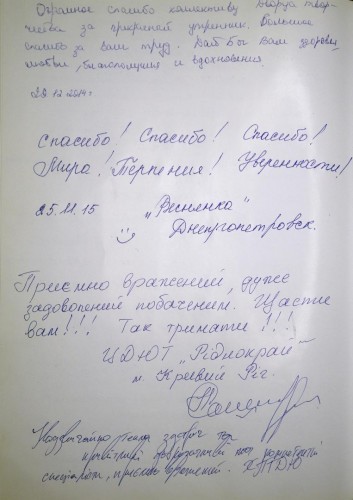 Огромное спасибо коллективу дворца твор-
чества за прекрасный утренник. Большое
спасибо за Ваш труд. Дай Бог Вам здоровья,
любви, благополучия и вдохновения.
28.12.2014г
Спасибо! Спасибо! Спасибо!
Мира! Терпения! Уверенности!
25.11.15 „Веснянка"
Днепропетровск.
Приємно вражений, дуже
задоволений побаченим. Щастя
вам!!! Так тримати!!!
ЦДЮТ „Ріднокрай"
м. Кривий Ріг.
Надзвичайно
спеціалісти, приємно вражений.